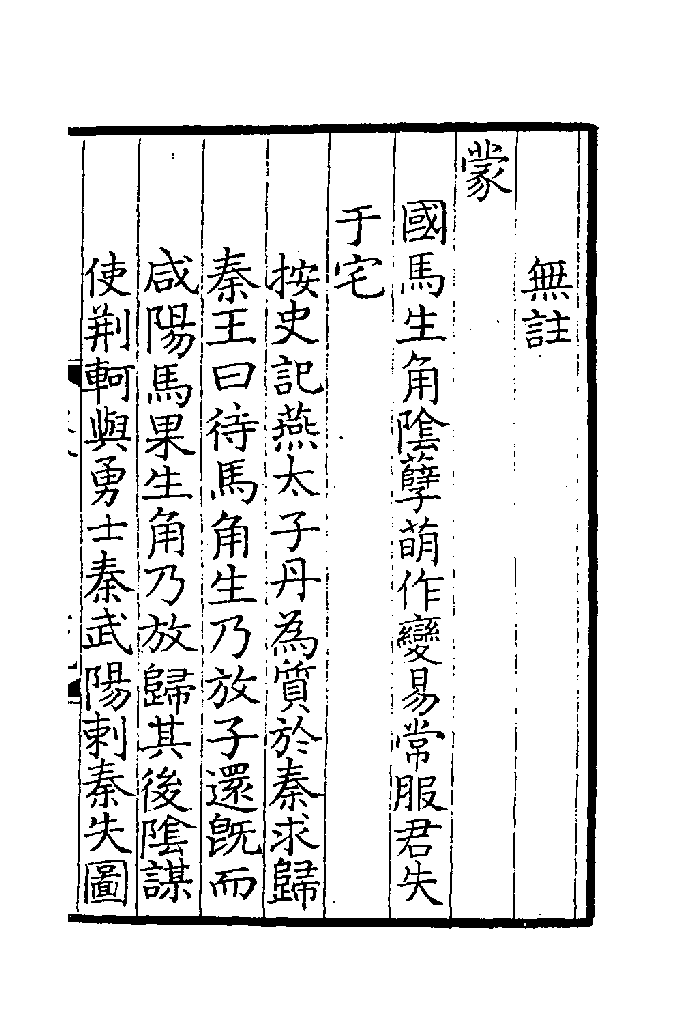 無註
蒙
國馬生角陰孽萌作變易常服君失
于宅
按史記燕太子丹為質於秦求歸
秦王曰待馬角生乃放子還既而
咸陽馬果生角乃放歸其後陰謀
使荆軻與勇士秦武陽刺秦失圖